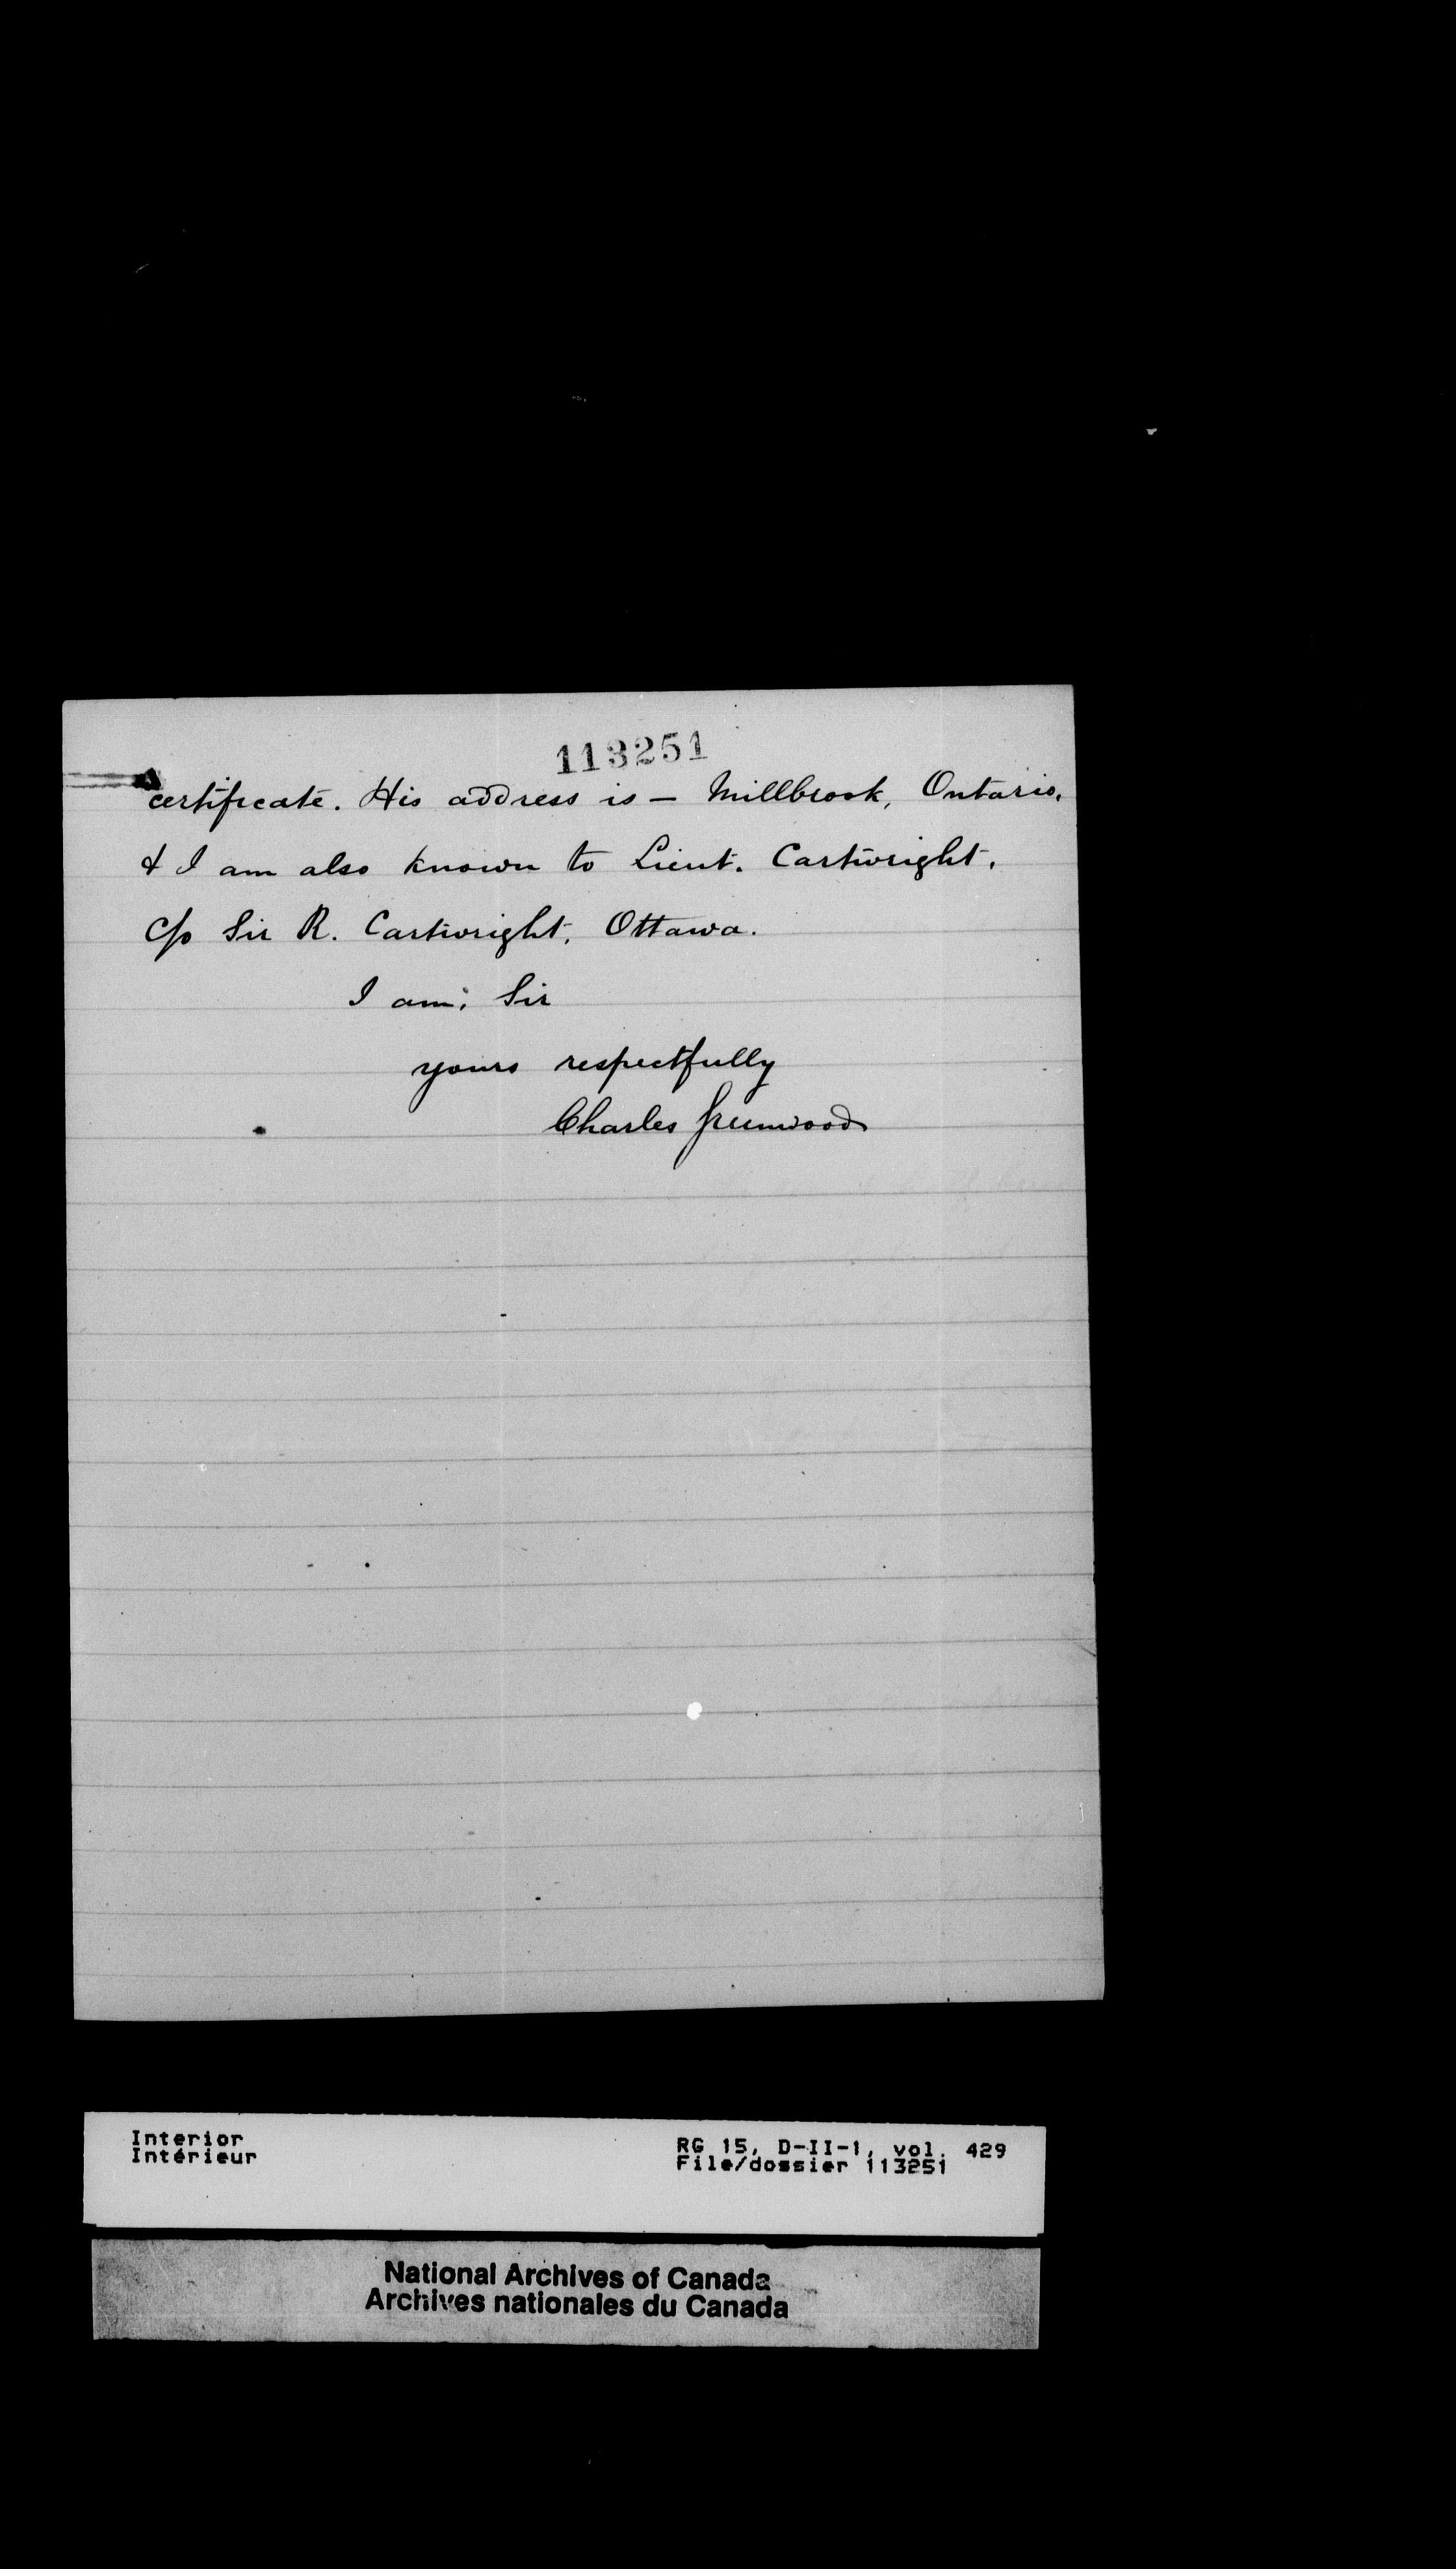 113251
certificate. His address is — Millbrook, Ontario,
& I am also known to Lieut. Cartwright,
c/o Sir R. Cartwright, Ottawa.
I am; Sir
yours respectfully
Charles Greenwood
Interior
Intérieur
RG 15, D-II-1, vol. 429
File/dossier 113251
National Archives of Canada
Archives nationales du Canada